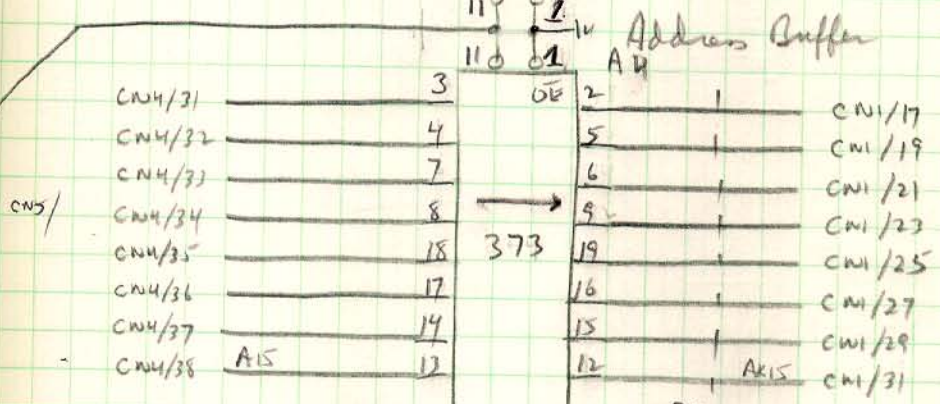 11 1
10 Address Buffer
11 1 A4
CN4/31 3 OE 2 CN1/17
CN4/32 4 5 CN1/19
CN4/33 7 6 CN1/21
CN5/ CN4/34 8 9 CN1/23
CN4/35 18 373 19 CN1/25
CN4/36 17 16 CN1/27
CN4/37 14 15 CN1/29
CN4/38 A15 13 12 AK15 CN1/31